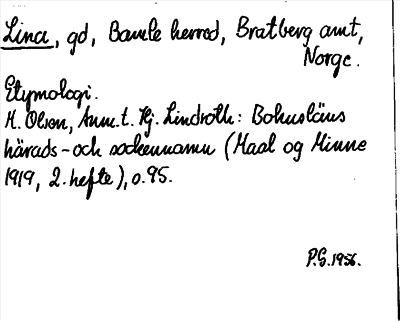 Lina, gd, Bamle herred, Bratberg amt,
Norge.
Etymologi.
M. Olsen, Anm. t. Hj. Lindroth: Bohusläns
härads- och sockennamn (Maal og Minne
1919, 2. hefte), s. 95.
P.G. 1956.